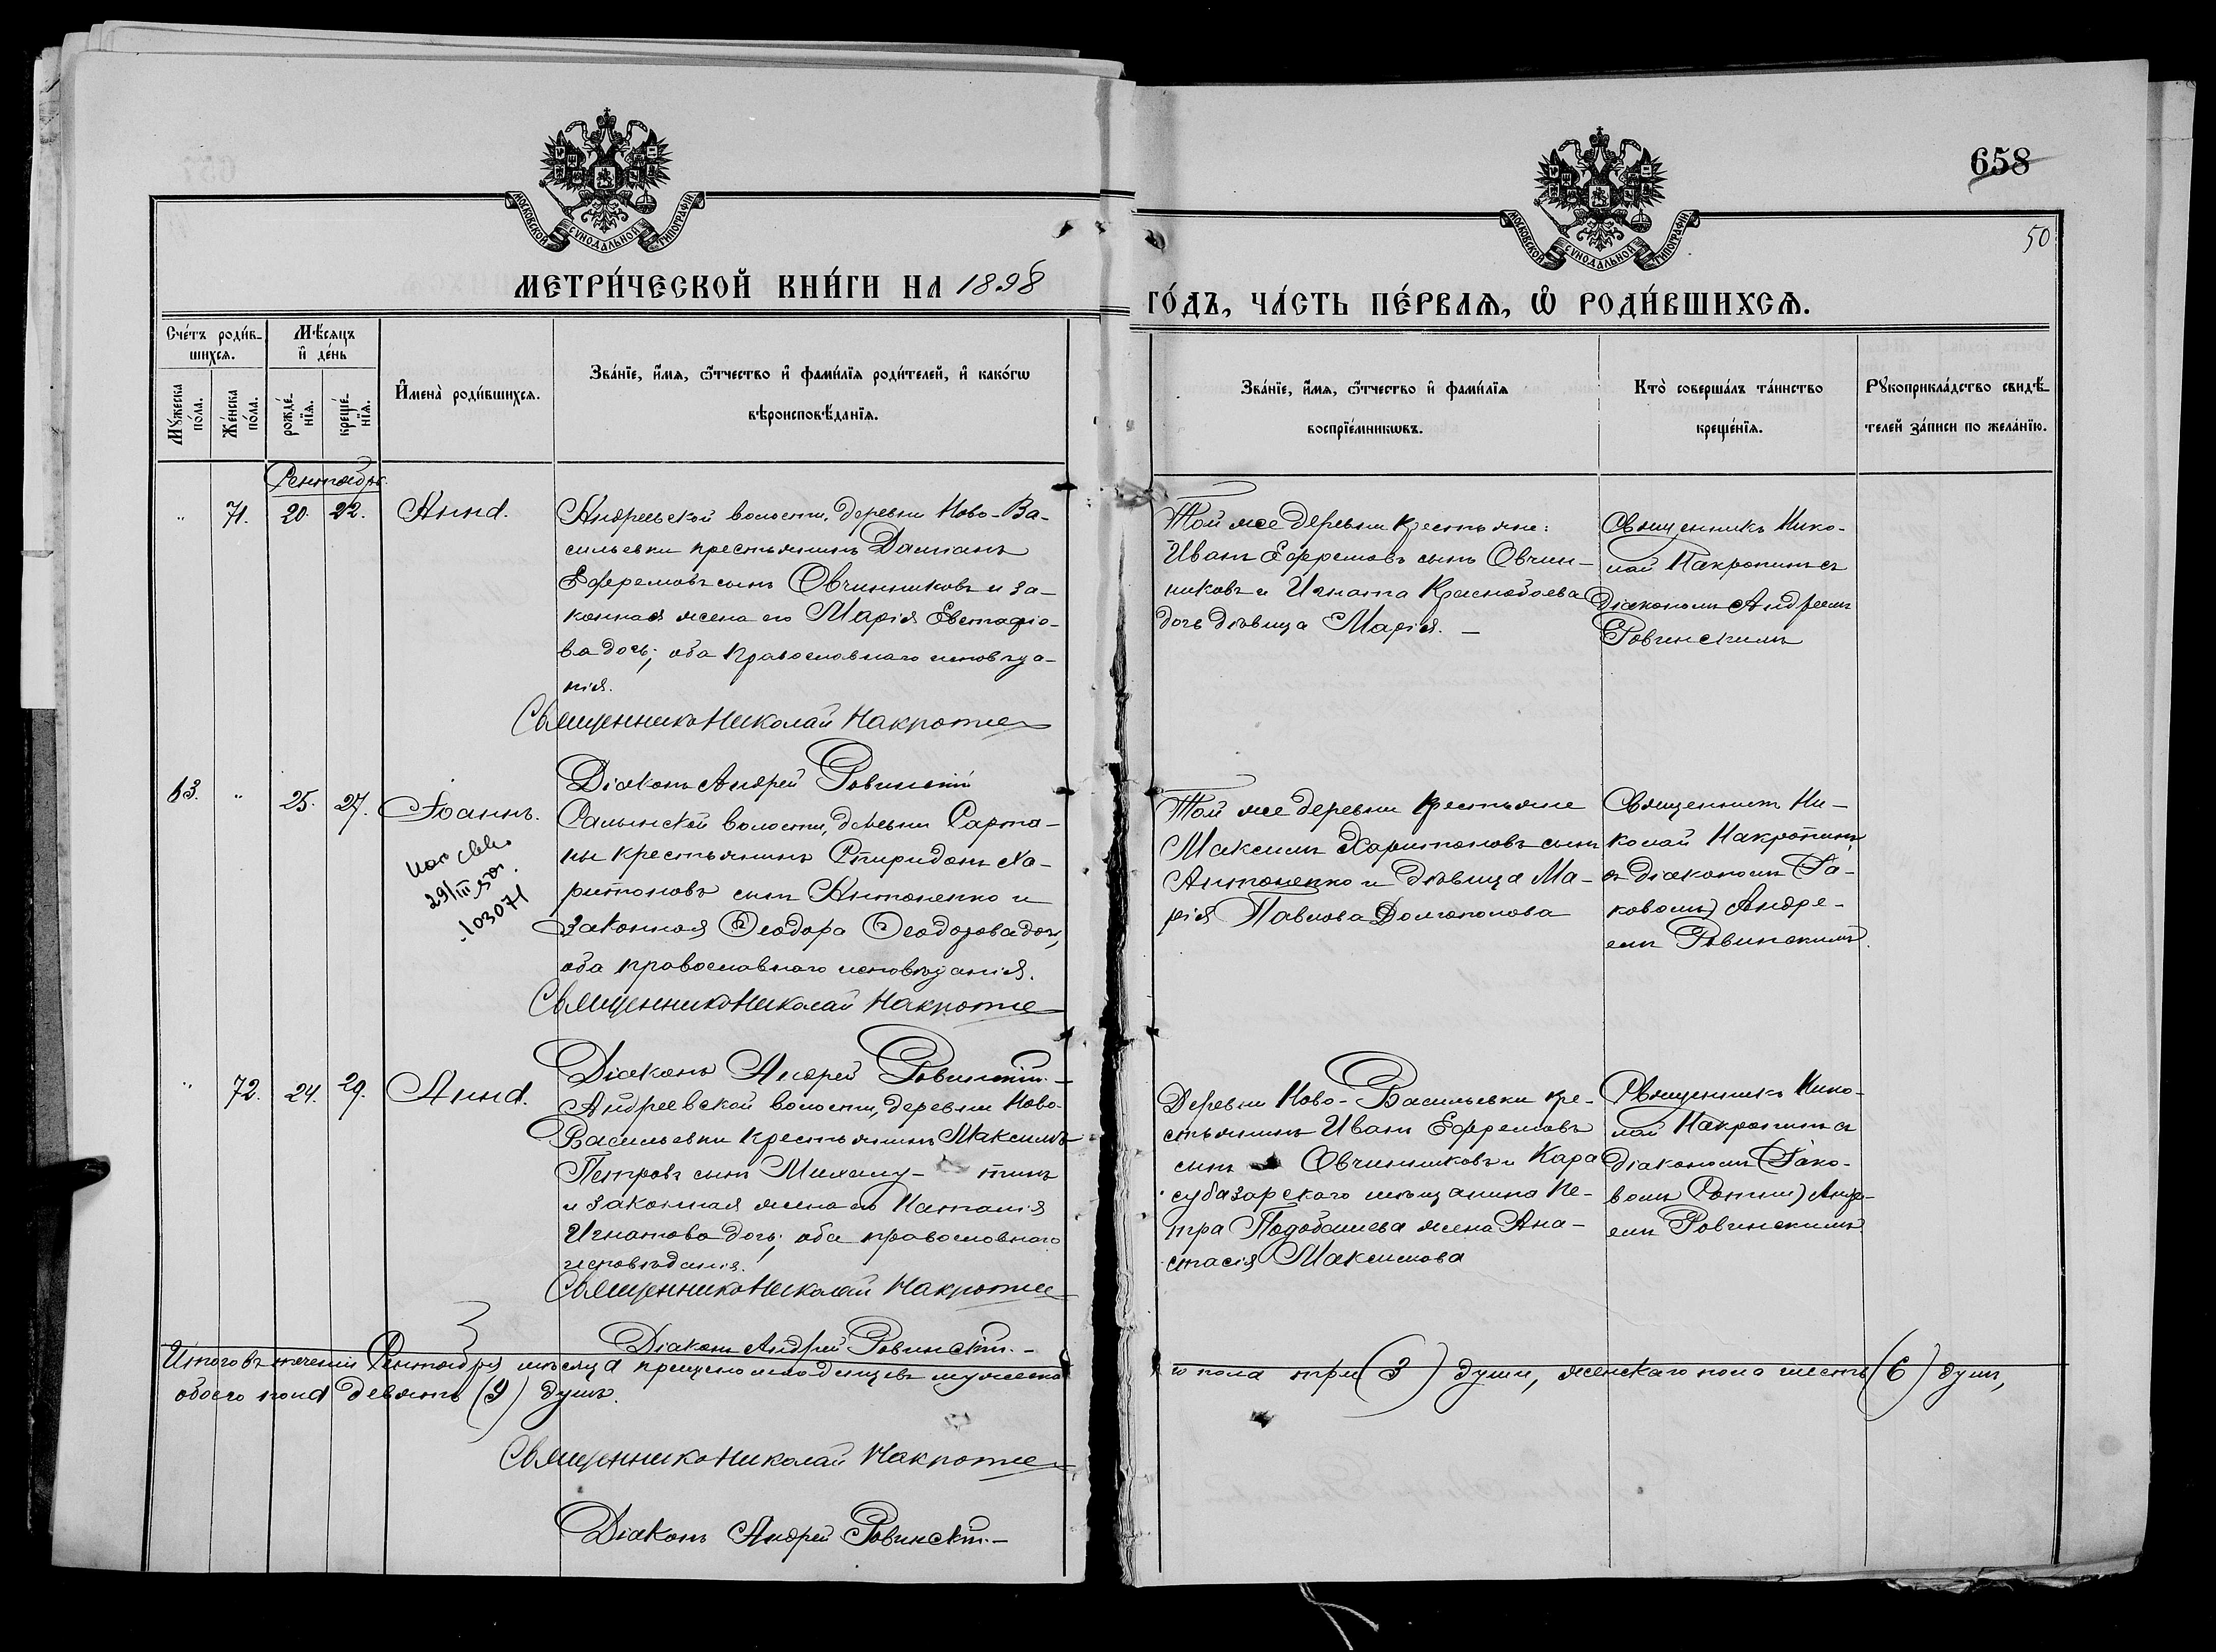 658
50
МОСКОВСКОЙ СѴНОДАЛЬНОЙ ТИПОГРАФІИ.
МОСКОВСКОЙ СѴНОДАЛЬНОЙ ТИПОГРАФІИ.
МЕТРИ́ЧЕСКОЙ КНИ́ГИ НА 1898
ГО́ДЪ, ЧА́СТЬ ПЕ́РВАѦ, Ѡ҆ РОДИ́ВШИХСѦ.
Сче́тъ роди́в-
шихсѧ.
Мꙋ́жеска по́ла.
Же́нска по́ла.
Мѣ́сѧцъ
и҆ де́нь
рожде́-
нїѧ.
креще́-
нїѧ.
И҆мена̀ роди́вшихсѧ.
Зва́нїе, и҆́мѧ, ѻ҆́тчество и҆ фами́лїѧ роди́телей, и҆ како́гѡ
вѣроисповѣ́данїѧ.
Зва́нїе, и҆́мѧ, ѻ҆́тчество и҆ фами́лїѧ
воспрїе́мникѡвъ.
Кто̀ соверша́лъ та́инство
креще́нїѧ.
Рꙋкоприкла́дство свидѣ́-
телей за́писи по жела́нїю.
Сентябрь.
" 71. 20. 22. Анна.
Андреевской волости, деревни Ново-Ва-
сильевки крестьянинъ Даміанъ
Ефремовъ сынъ Овчинниковъ и за-
конная жена его Марія Евстафіо-
ва дочь; оба православнаго исповѣда-
нія.
Священникъ Николай Накропинъ
Діаконъ Андрей Ровинскій
Той же деревни крестьяне:
Иванъ Ефремовъ сынъ Овчин-
никовъ и Игната Краснобаева
дочь дѣвица Марія. —
Священникъ Нико-
лай Накропинъ съ
діакономъ Андреемъ
Ровинскимъ
63. " 25. 27. Іоаннъ.
29/III 50
103071
Салынской волости, деревни Сарта-
ны крестьянинъ Спиридонъ Ха-
ритоновъ сынъ Антоненко и
законная Ѳеодора Ѳеодорова дочь,
оба православнаго исповѣданія.
Священникъ Николай Накропинъ
Діаконъ Андрей Ровинскій —
Той же деревни крестьяне
Максимъ Харитоновъ сынъ
Антоненко и дѣвица Ма-
рія Павлова Долгополова
Священникъ Ни-
колай Накропинъ
съ діакономъ (Іа-
ковомъ) Андре-
емъ Ровинскимъ.
" 72. 24. 29. Анна.
Андреевской волости, деревни Ново-
Васильевки крестьянинъ Максимъ
Петровъ сынъ
и законная жена его Наталія
Игнатова дочь; оба православнаго
исповѣданія.
Священникъ Николай Накропинъ
Діаконъ Андрей Ровинскій. —
Деревни Ново-Васильевки кре-
стьянинъ Иванъ Ефремовъ
сынъ Овчинниковъ и Кара
субазарского мѣщанина Пе-
тра жена Ана-
стасія Максимова
Священникъ Нико-
лай Накропинъ съ
діакономъ (Іако-
вомъ) Андре-
емъ Ровинскимъ
Итого въ теченіи Сентября мѣсяца крещено младенцевъ мужеска
го пола три (3) души, женскаго пола шесть (6) душъ,
обоего пола девять (9) душъ.
Священникъ Николай Накропинъ
Діаконъ Андрей Ровинскій. —